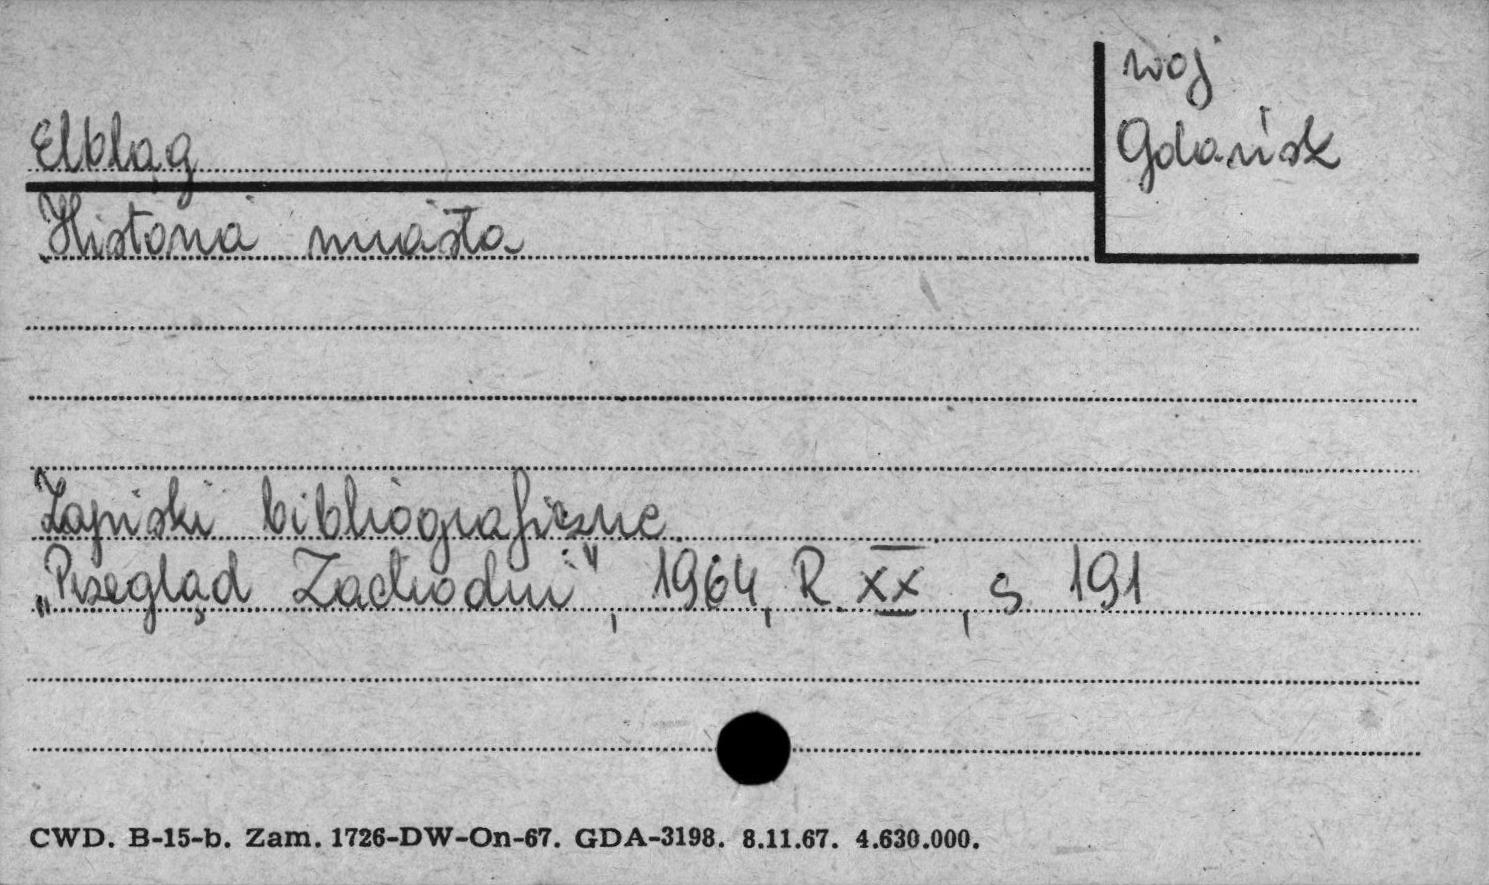 woj
Gdańsk
Elbląg
Historia miasta
Zapiski bibliograficzne.
„Przegląd Zachodni", 1964, R. XX, s 191
CWD. B-15-b. Zam. 1726-DW-On-67. GDA-3198. 8.11.67. 4.630.000.